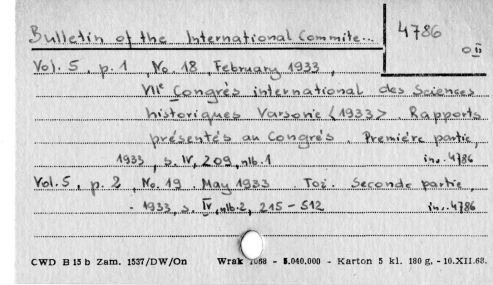 Bulletin of the International Commite...
4786
Vol. 5, p. 1, No. 18, February 1933,
VIIe Congrès international des Sciences
historiques Varsovie <1933> Rapports
présentés au Congrès. Première partie,
1933, s. IV, 209, nlb. 1 inw. 4786
Vol. 5, p. 2, No. 19. May 1933 Toż. Seconde partie,
- 1933, s. IV, nlb. 2, 215-512 inw. 4786
CWD B 15 b Zam. 1537/DW/On Wrak 1068 - 5.040.000 - Karton 5 kl. 180 g. - 10.XII.68.